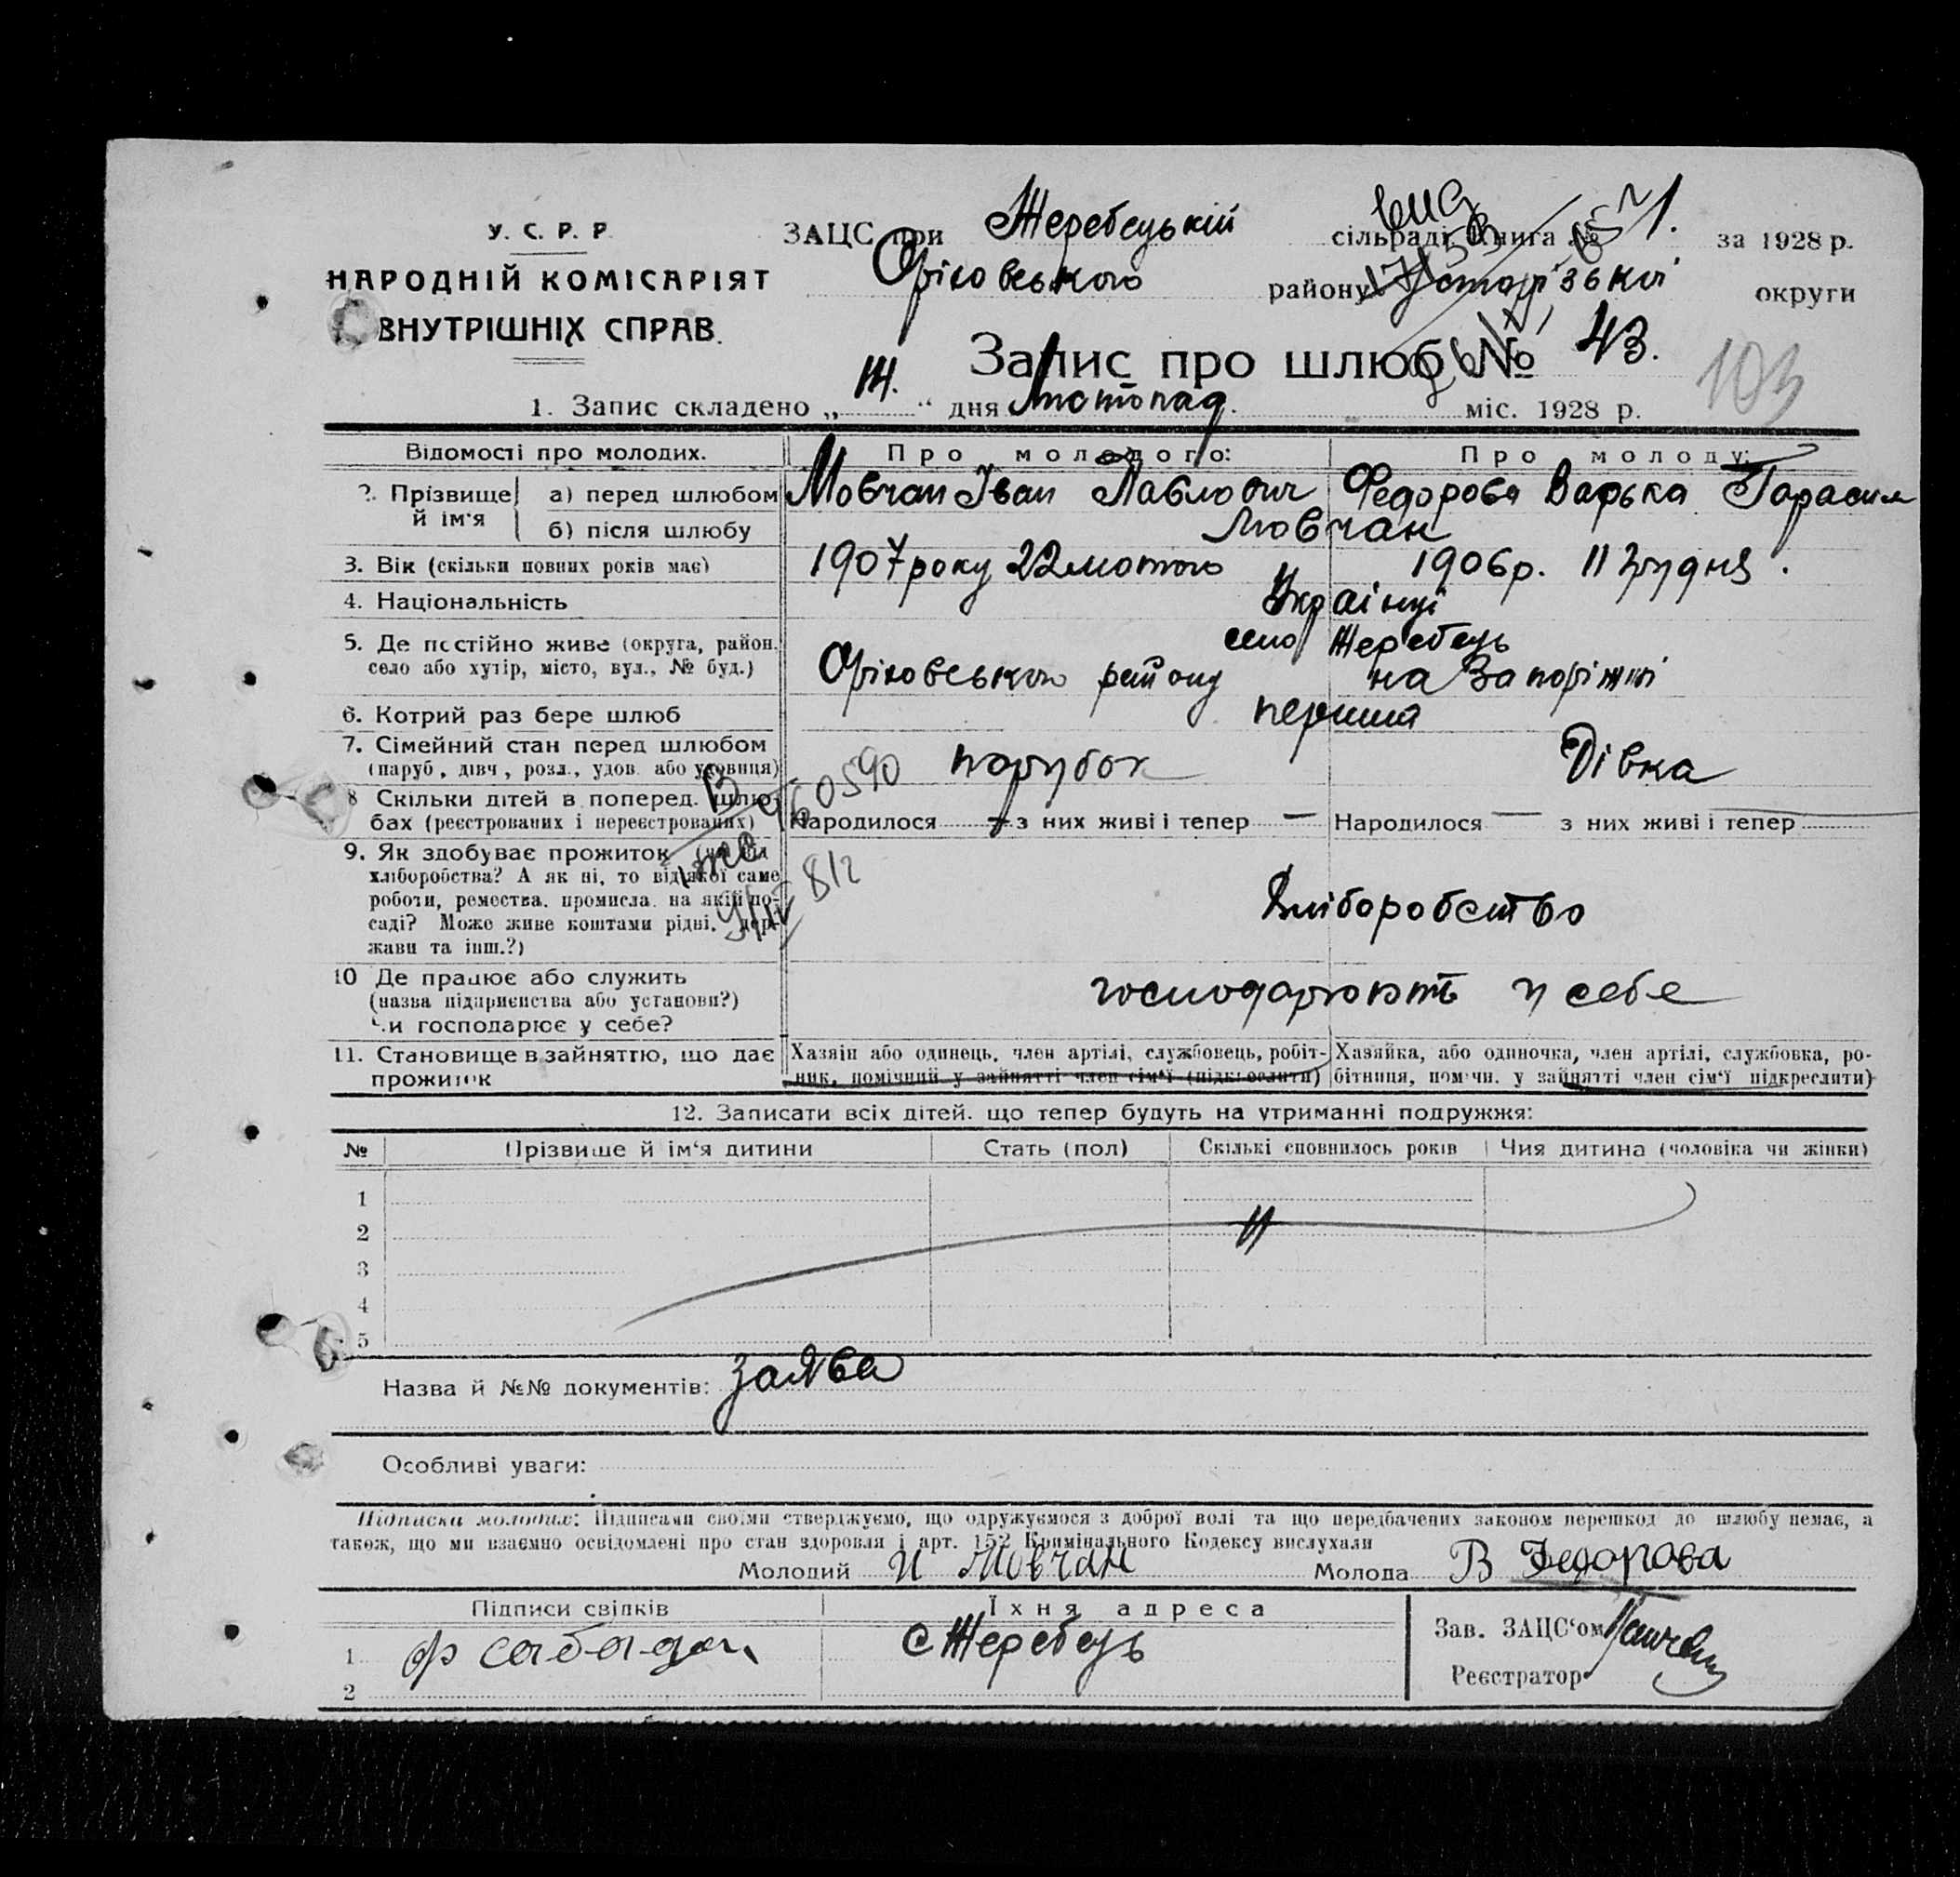 У. С. Р. Р.
НАРОДНІЙ КОМІСАРІЯТ
ВНУТРІШНІХ СПРАВ.
ЗАЦС при Жеребецькій сільраді. Книга № 1. за 1928 р.
Оріховського району Запорізької округи
Запис про шлюб № 43.
103
1. Запис складено „14.“ дня Листопад. міс. 1928 р.
Відомості про молодих. Про молодого: Про молоду:
2. Прізвище й ім‘я
а) перед шлюбом Мовчан Іван Павлович Федорова Варька Тарасим
б) після шлюбу Мовчан
3. Вік (скільки повних років має) 1907 року 22 лютого 1906 р. 11 грудня.
4. Національність Українці
5. Де постійно живе (округа, район, село Жеребець
село або хутір, місто, вул., № буд.) Оріховського району на Запоріжжі
6. Котрий раз бере шлюб перший
7. Сімейний стан перед шлюбом
(паруб., дівч., розл., удов. або удовиця) парубок Дівка
8 Скільки дітей в поперед. шлю-
бах (реєстрованих і нереєстрованих) Народилося — з них живі і тепер — Народилося — з них живі і тепер
060590
9. Як здобуває прожиток (чи від
хліборобства? А як ні, то від якої саме
роботи, ремества, промисла, на якій по-
саді? Може живе коштами рідні, дер-
жави та інш.?)
812
Хліборобство
10 Де працює або служить
(назва підприємства або установи?)
Чи господарює у себе?
господарюють у себе
11. Становище в зайняттю, що дає
прожиток
Хазяїн або одинець, член артілі, службовець, робіт-
ник, помічний у зайнятті член сім‘ї (підкреслити)
Хазяйка, або одиночка, член артілі, службовка, ро-
бітниця, помічн. у зайнятті член сім‘ї підкреслити)
12. Записати всіх дітей, що тепер будуть на утриманні подружжя:
№ Прізвише й ім‘я дитини Стать (пол) Скількі сповнилось років Чия дитина (чоловіка чи жінки)
1
2
3
4
5
Назва й №№ документів: заява
Особливі уваги:
Підписка молодих: Підписами своїми стверджуємо, що одружуємося з доброї волі та що передбачених законом перешкод до шлюбу немає, а
також, що ми взаємно освідомлені про стан здоровля і арт. 152 Кримінального Кодексу вислухали
Молодий И Мовчан Молода В Федорова
Підписи свідків Їхня адреса
1 с Жеребець
2
Зав. ЗАЦС‘ом
Реєстратор